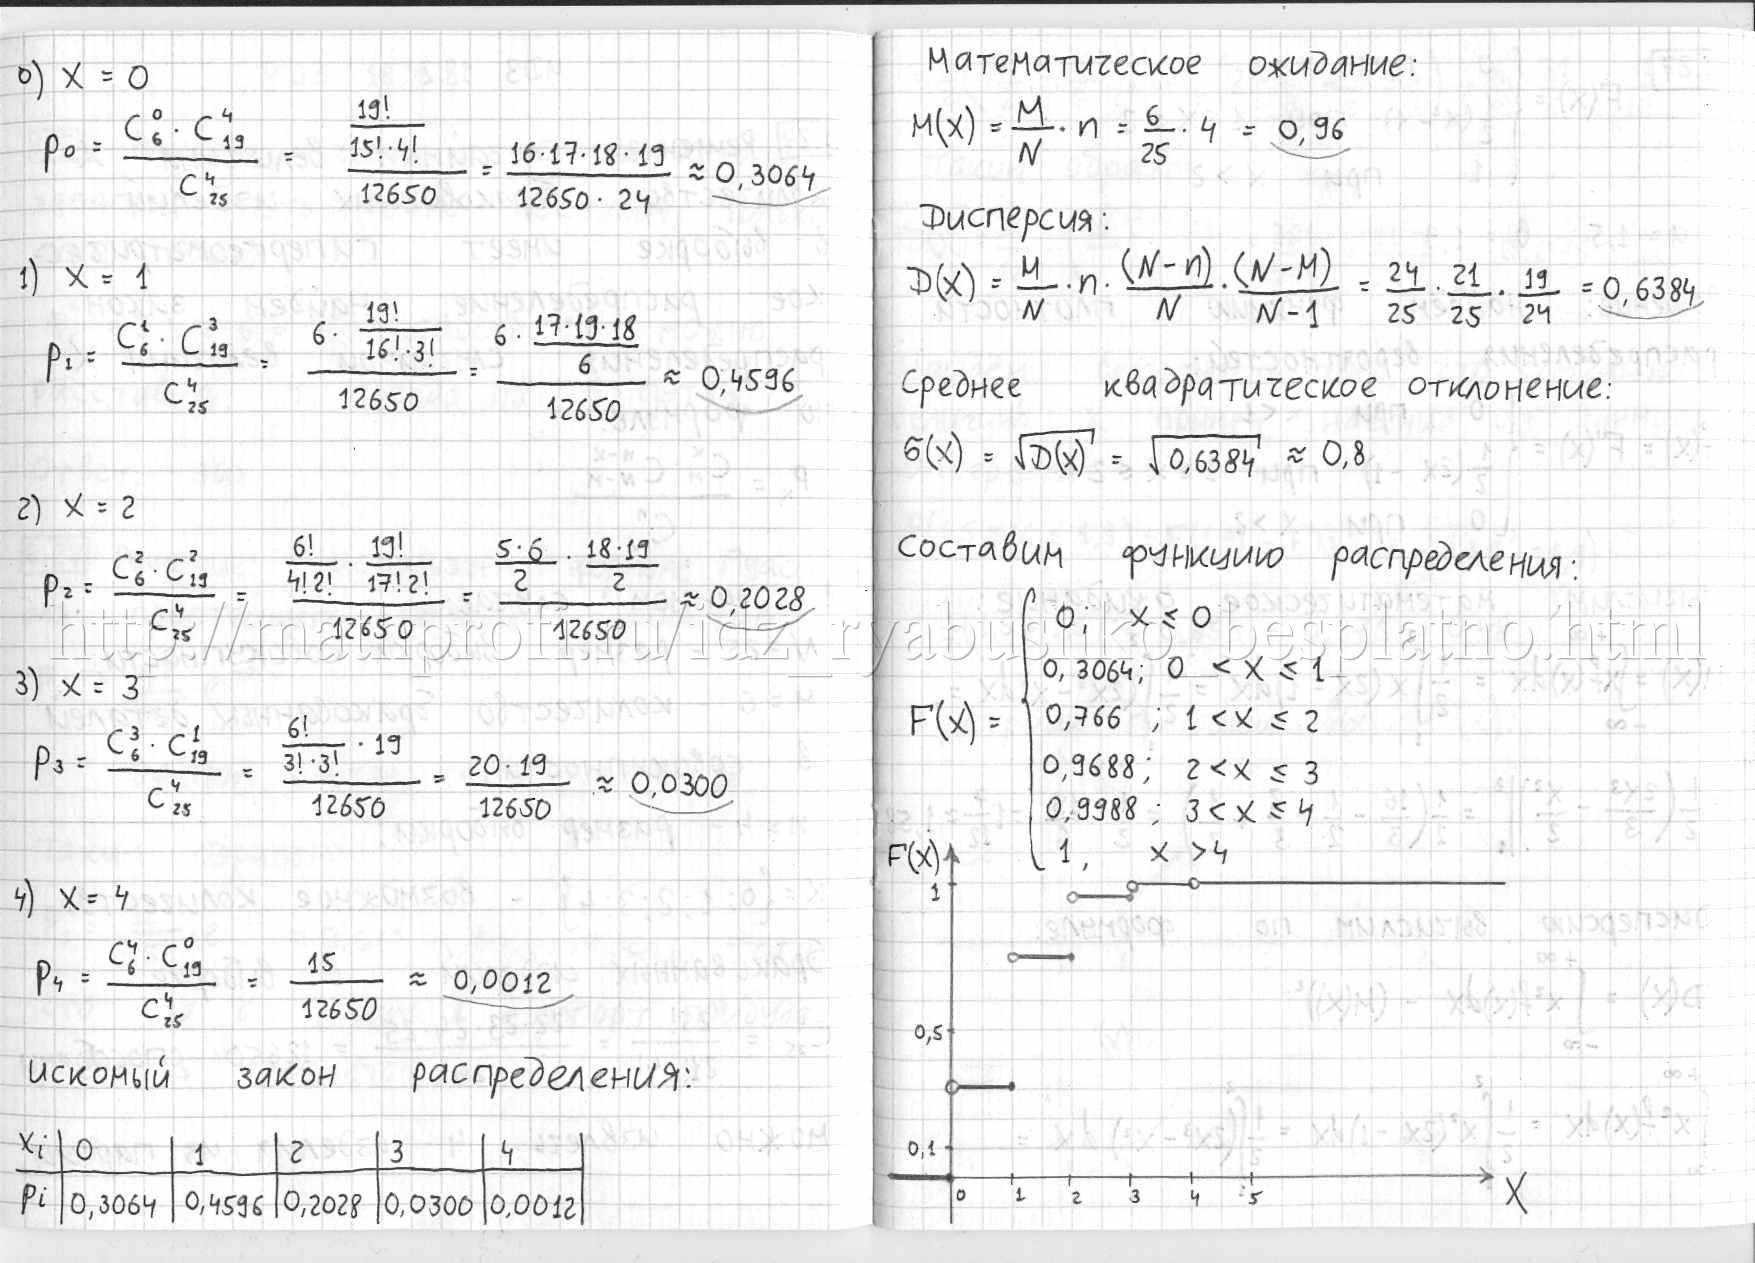 0) X = 0
p₀ = (C₆⁰ · C₁₉⁴)/C₂₅⁴ = (19!/(15!·4!))/12650 = (16·17·18·19)/(12650·24) ≈ 0,3064
1) X = 1
p₁ = (C₆¹ · C₁₉³)/C₂₅⁴ = (6 · 19!/(16!·3!))/12650 = (6 · (17·19·18)/6)/12650 ≈ 0,4596
2) X = 2
p₂ = (C₆² · C₁₉²)/C₂₅⁴ = (6!/(4!2!) · 19!/(17!2!))/12650 = ((5·6)/2 · (18·19)/2)/12650 ≈ 0,2028
3) X = 3
p₃ = (C₆³ · C₁₉¹)/C₂₅⁴ = (6!/(3!·3!) · 19)/12650 = (20·19)/12650 ≈ 0,0300
4) X = 4
p₄ = (C₆⁴ · C₁₉⁰)/C₂₅⁴ = 15/12650 ≈ 0,0012
искомый закон распределения:
xi 0 1 2 3 4
pi 0,3064 0,4596 0,2028 0,0300 0,0012
Математическое ожидание:
M(X) = M/N · n = 6/25 · 4 = 0,96
Дисперсия:
D(X) = M/N · n · (N-n)/N · (N-M)/(N-1) = 24/25 · 21/25 · 19/24 = 0,6384
Среднее квадратическое отклонение:
σ(X) = √D(X) = √0,6384 ≈ 0,8
Составим функцию распределения:
0; x ≤ 0
0,3064; 0 < x ≤ 1
F(x) = 0,766 ; 1 < x ≤ 2
0,9688; 2 < x ≤ 3
0,9988; 3 < x ≤ 4
1, x > 4
F(x)
1
0,5
0,1
0 1 2 3 4 5 X
http://mathprofi.ru/idz_ryabushko_besplatno.html